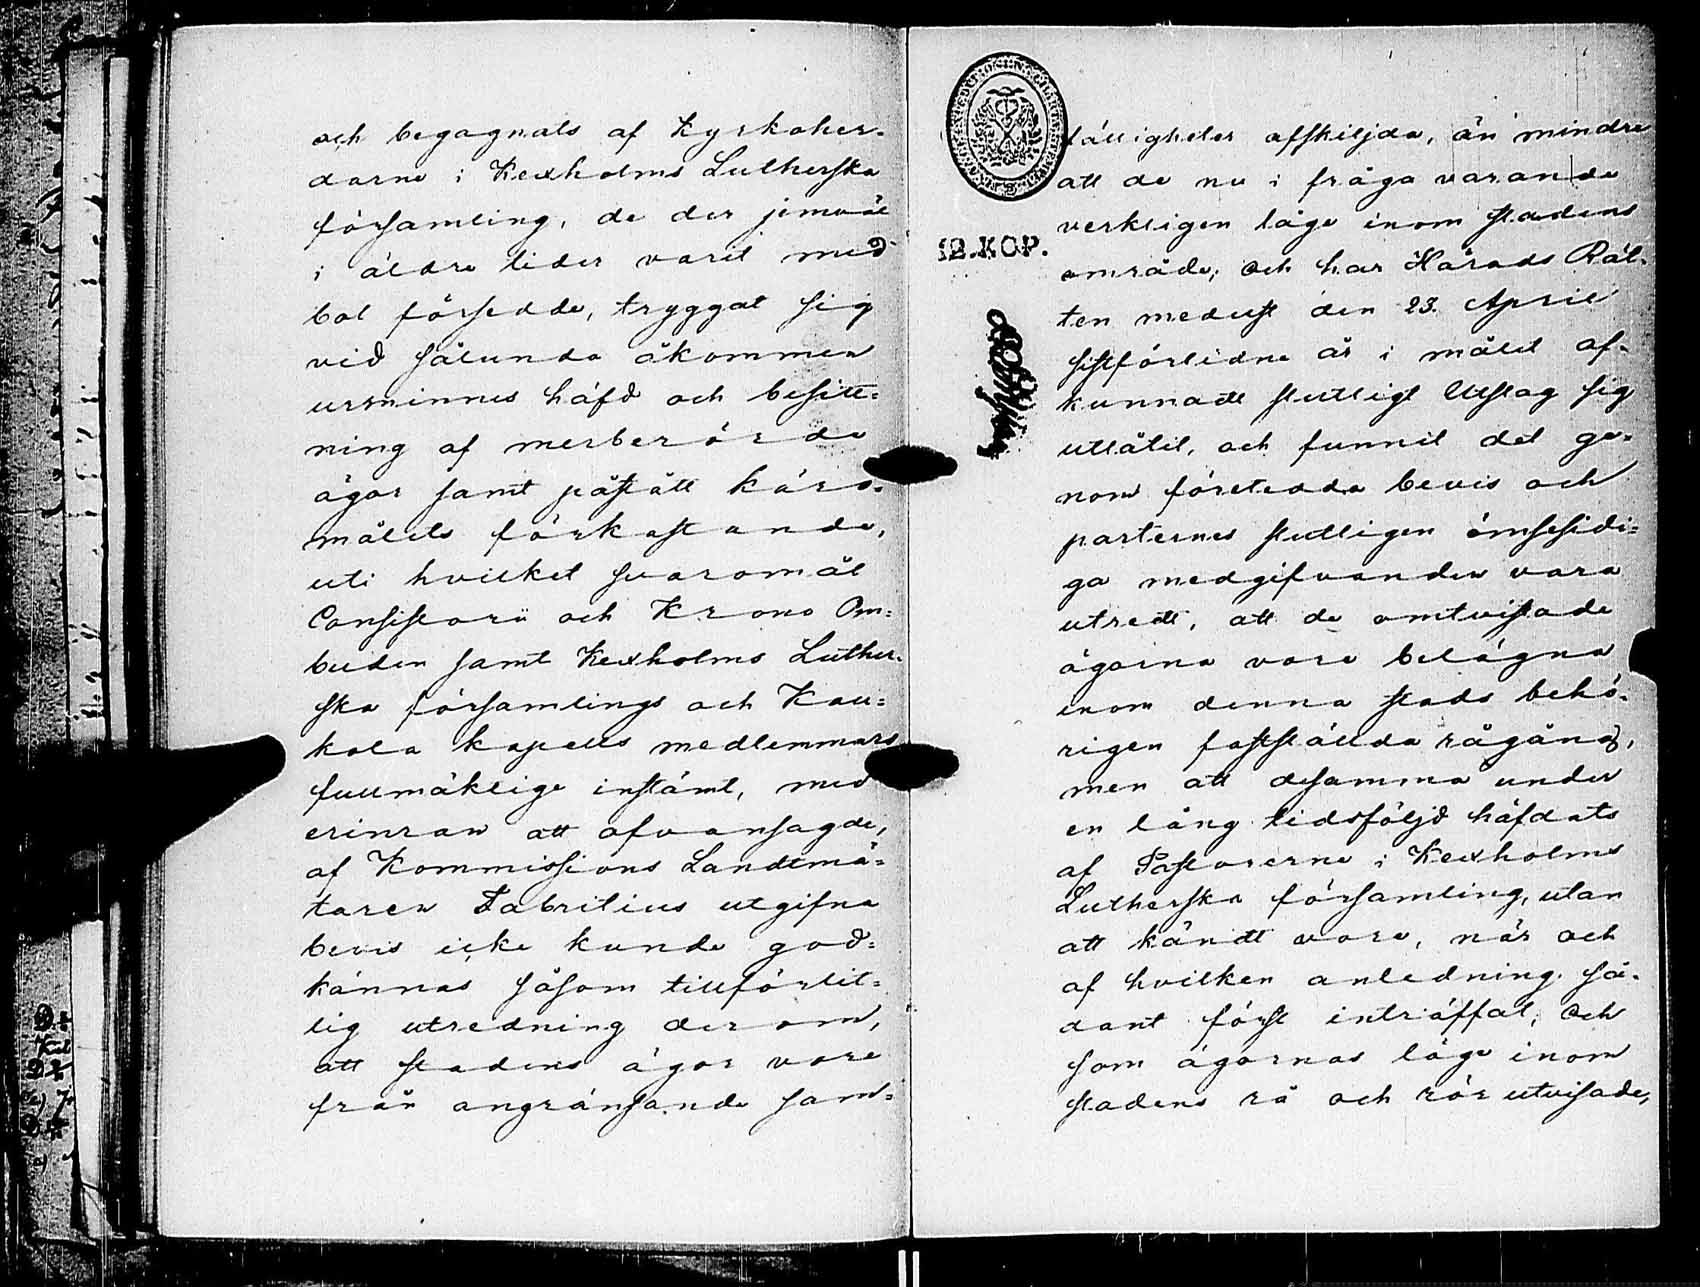 och begagnats af Kyrkoher-
darne i Kexholms Lutherska
församling, de der jemväl
i äldre tider varit med
bol försedde, tryggat sig
vid sålunda åkommen
urminnes häfd och besitt=
ning af merberörde
ägor samt påstått käro-
målets förkastande,
uti hvilket svaromål
Consistorii och Krono Om=
buden samt Kexholms Luther-
ska församlings och Kau=
kola kapells medlemmars
fullmäktige instämt, med
erinran att ofvansagde,
af Kommissions Landtmä=
taren Fabritius utgifna
bevis icke kunde god=
kännas såsom tillförlit=
lig utredning derom,
att stadens ägor vore
från angränsande sam=
12.KOP.
fälligheter afskiljda, än mindre
att de nu i fråga varande
verkligen låge inom stadens
område; och har Härads Rät-
ten medelst den 23. April
sistförlidne år i målet af-
kunnadt slutligt Utslag sig
utlåtit, och funnit det ge-
nom företedda bevis och
parternes slutligen ömsesidi=
ga medgifvanden vara
utredt, att de omtvistade
ägorna vore belägna
inom denna stads behö-
rigen fastställda rågång,
men att desamma under
en lång tidsföljd häfdats
af Pastorerne i Kexholms
Lutherska församling, utan
att kändt vore, när och
af hvilken anledning så-
dant först inträffat; och
som ägornas läge inom
stadens rå och rör utvisade,